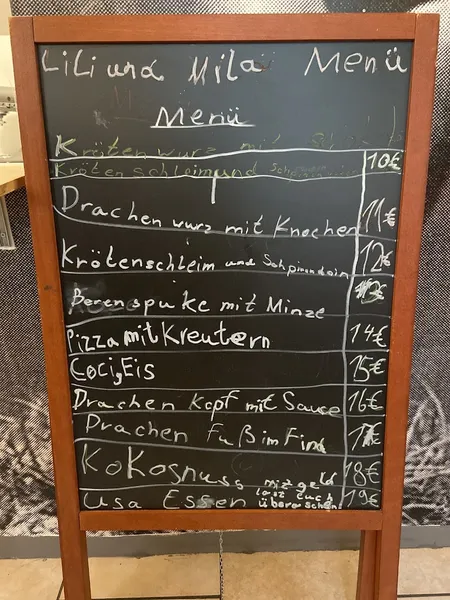 LiLi und Mila Menü
Menü
Kröten wurz mit
Krötenschleim und 10€
Drachen wurz mit Knochen 11€
Krötenschleim und 12€
Beren spuke mit Minze
Pizza mit Kreutern 14€
Coci,Eis 15€
Drachen Kopf mit Sauce 16€
Drachen Fuß im Find 17€
KoKosnuss 18€
Usa Essen lasst euch überaschen! 19€